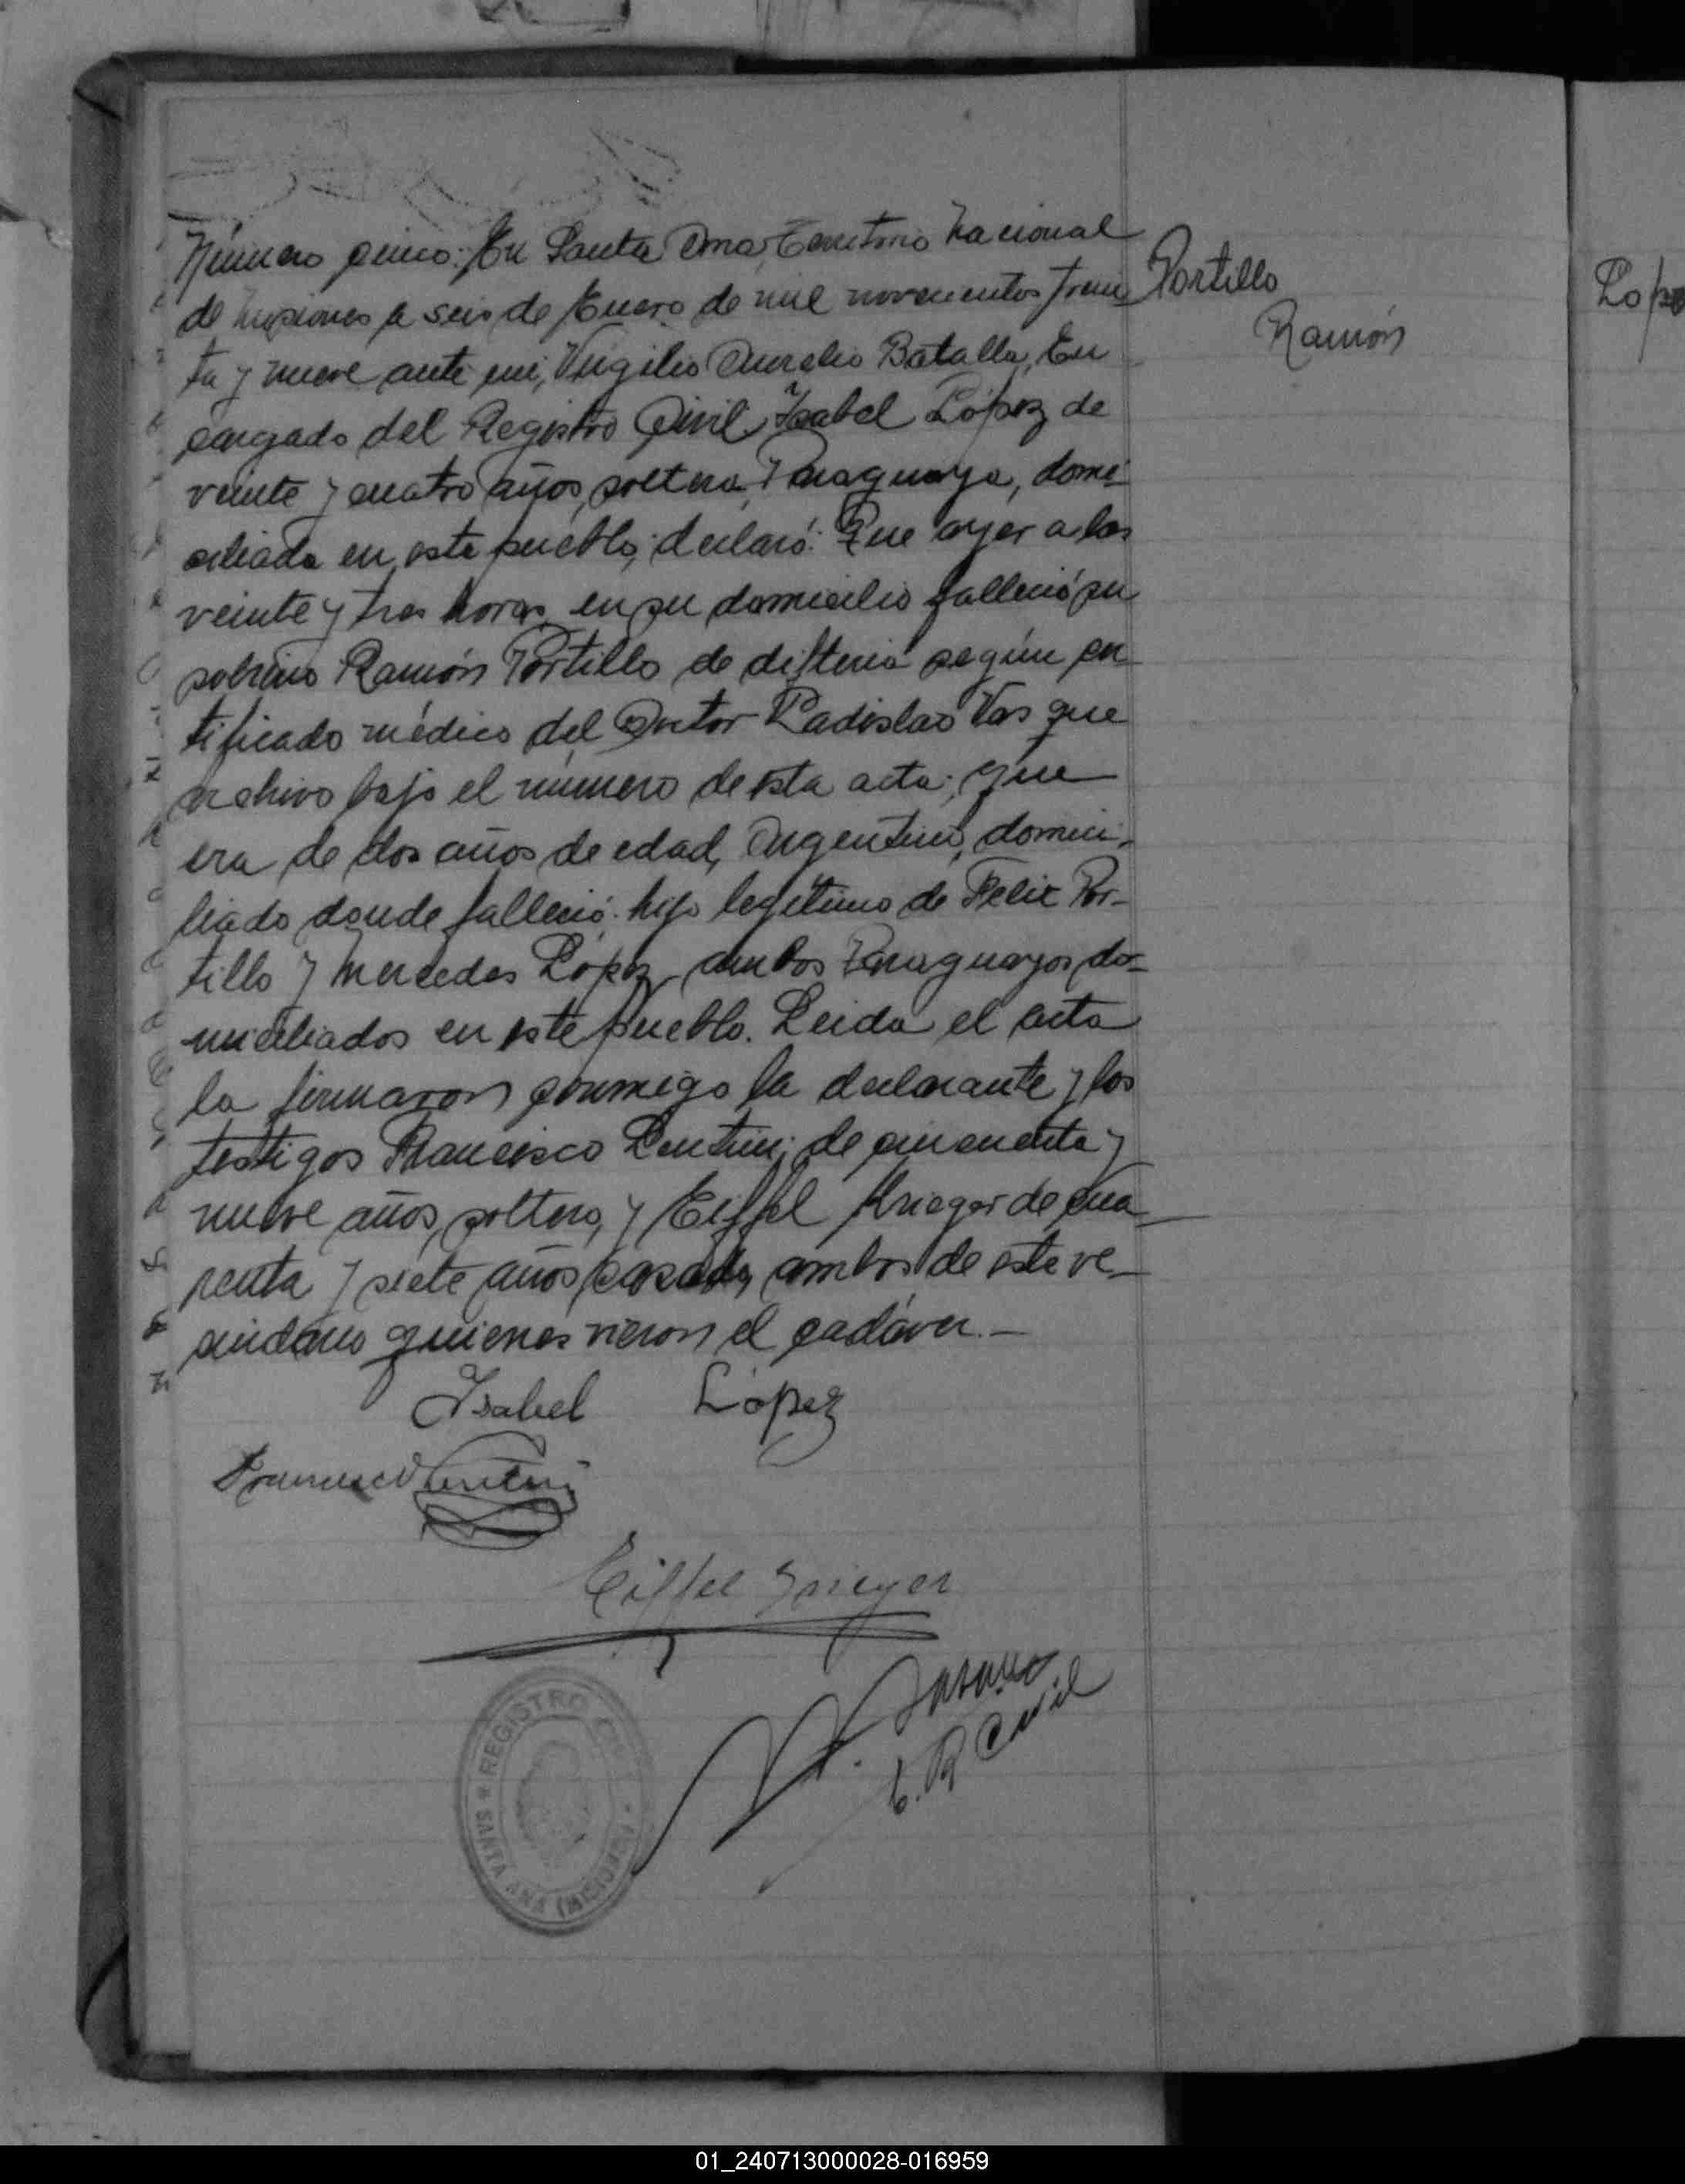 Número cinco: En Santa Ana, Territorio Nacional
de Misiones a seis de Enero de mil novecientos trein
ta y nueve ante mi, Virgilio Aurelio Batalla, En
cargado del Registro Civil, Isabel López de
veinte y cuatro años, soltera, Paraguaya, domi-
ciliada en este pueblo, declaró: Que ayer a las
veinte y tres horas, en su domicilio falleció su
sobrino Ramón Portillo de difteria según cer
tificado médico del Doctor Ladislao Vas que
archivo bajo el número de esta acta; que
era de dos años de edad, Argentino, domici-
liado donde falleció. hijo legítimo de Felix Por-
tillo y Mercedes López, ambos Paraguayos, do-
miciliados en este pueblo. Leida el acta
la firmaron conmigo la declarante y los
testigos Francisco Lentini, de cincuenta y
nueve años, soltero, y Eiffel Krieger de cua-
renta y siete años casado, ambos de este ve-
cindario quienes vieron el cadáver.-
Portillo
Ramón
Isabel López
Francisco Lentini
Eiffel Krieger
E. R Civil
REGISTRO CIVIL
SANTA ANA (MISIONES)
01_240713000028-016959